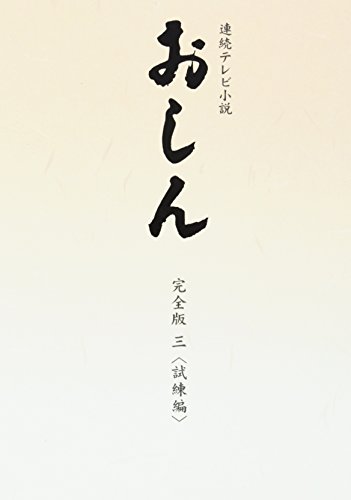 連続テレビ小説
おしん
完全版 三〈試練編〉